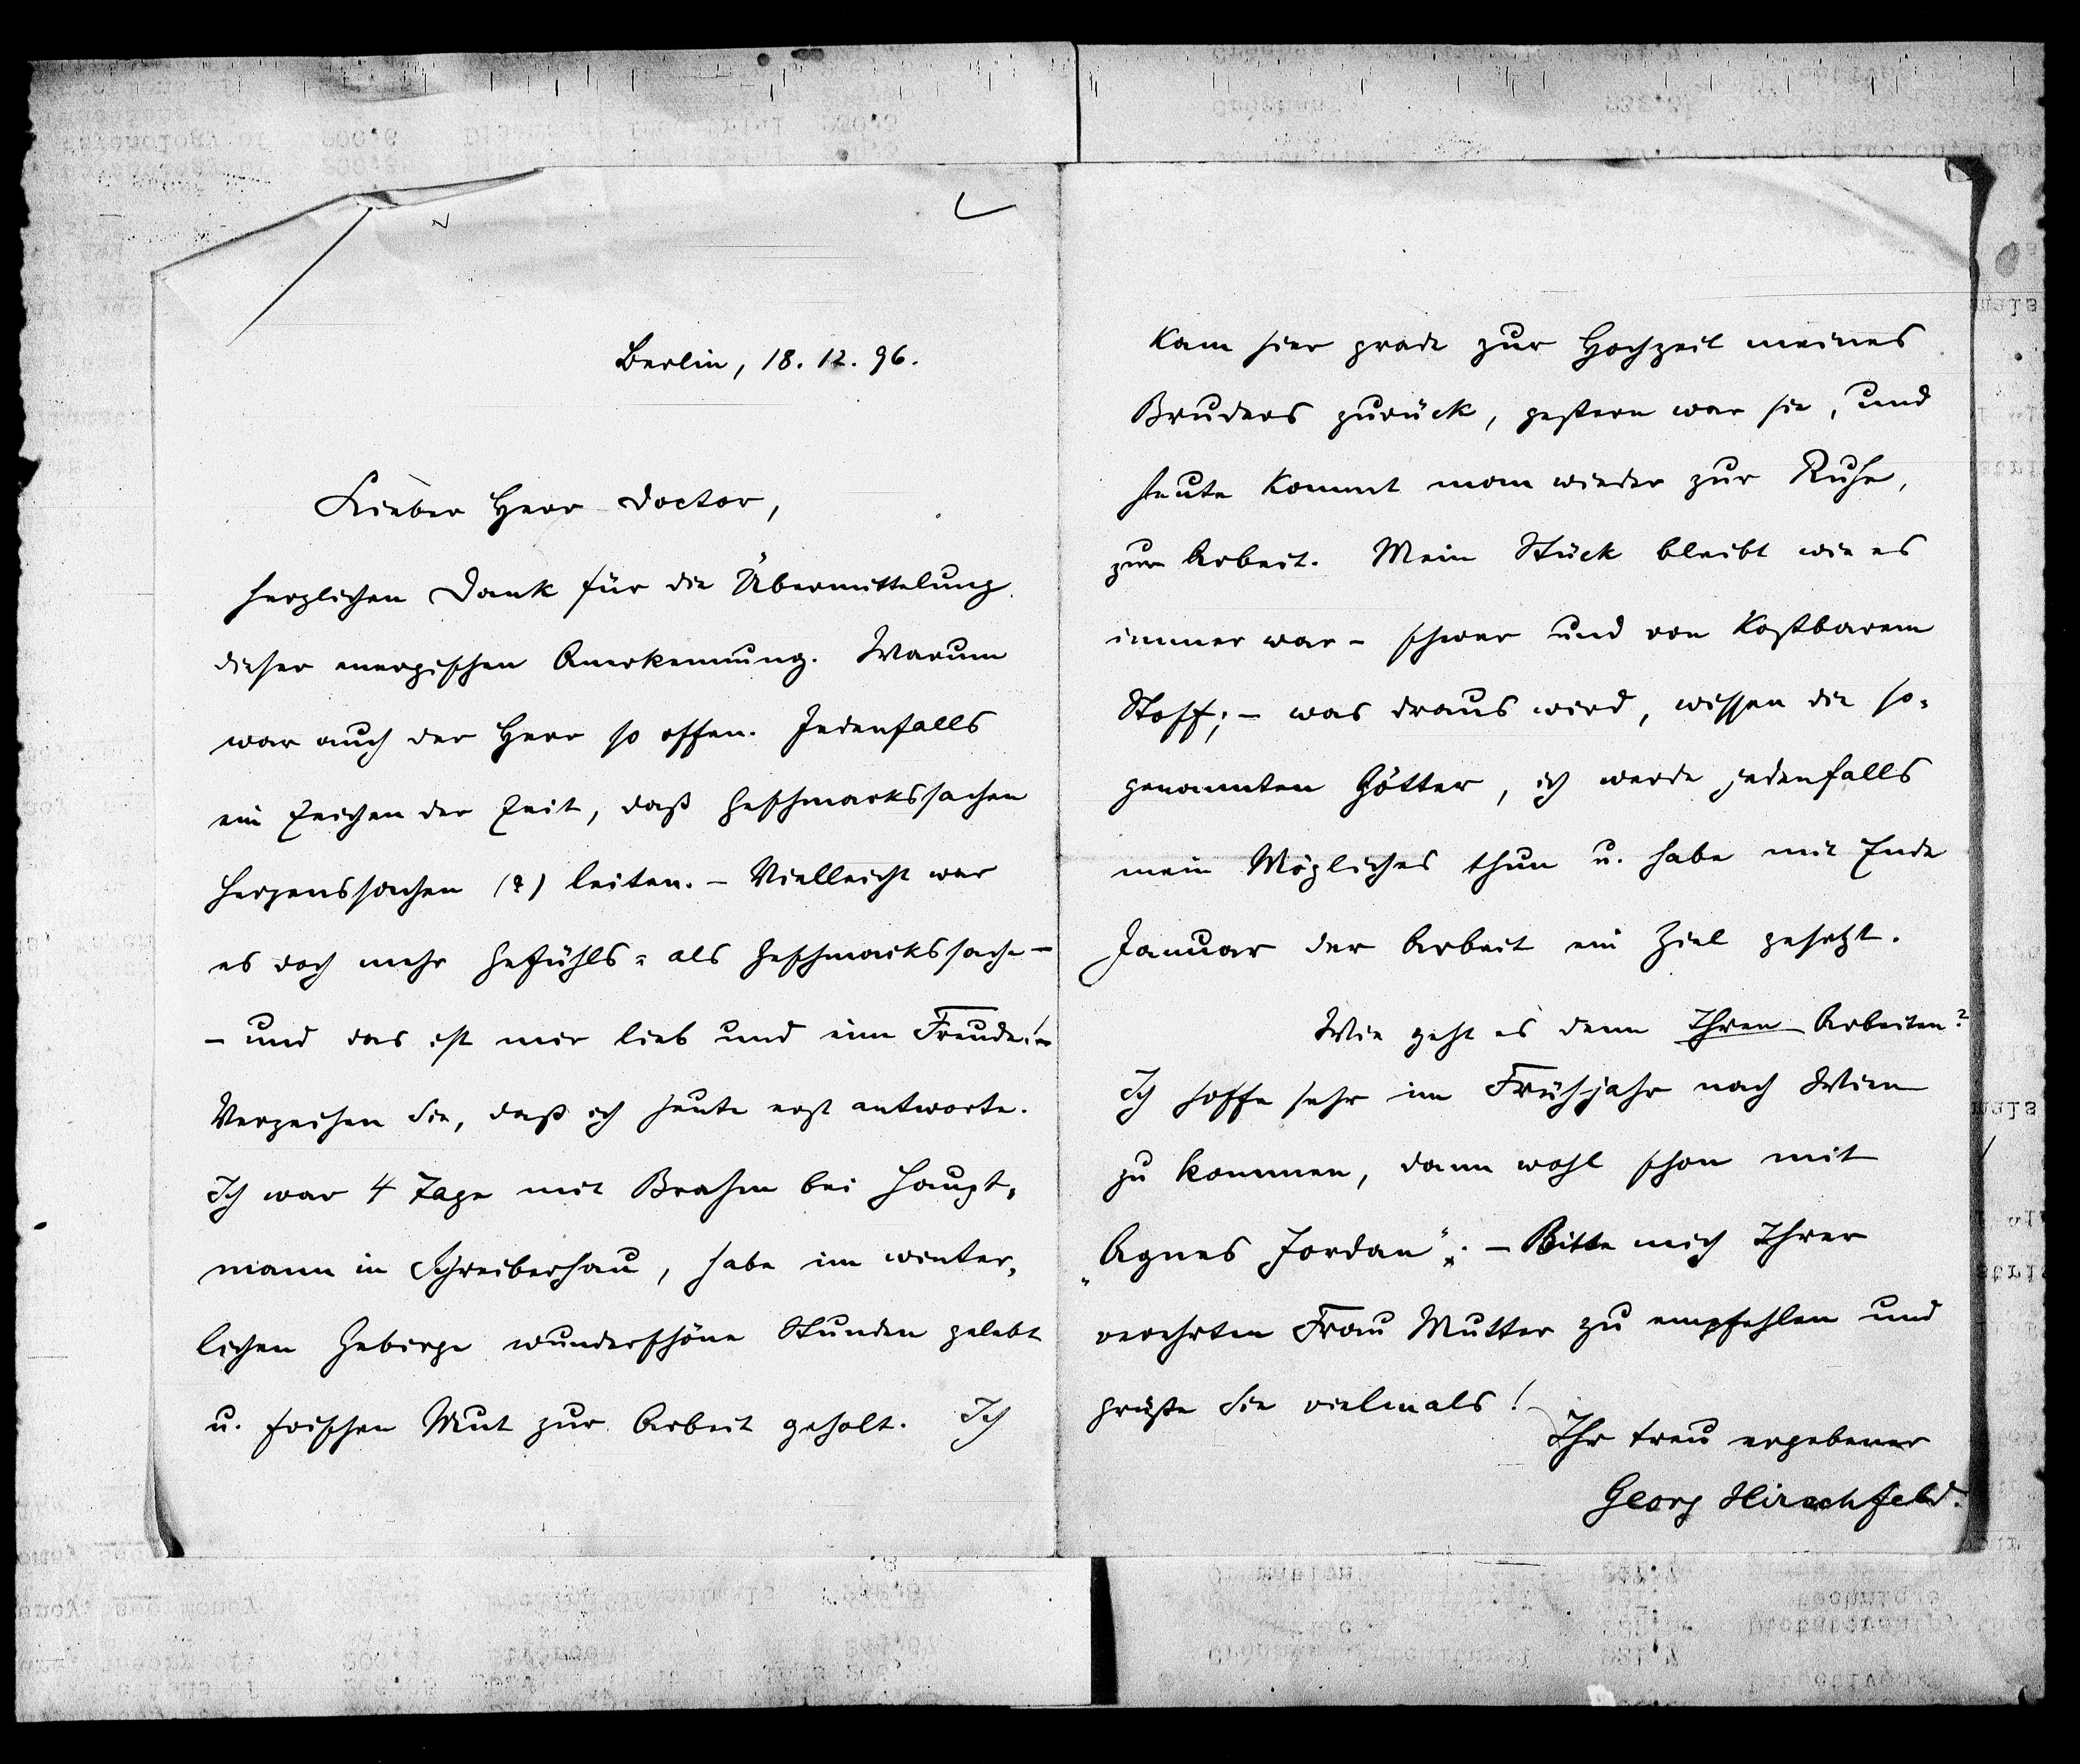 Berlin, 18. 12. 96.
Lieber Herr Doctor,
herzlichen Dank für die Übermittelung
dieser energischen Anerkennung. Warum
war auch der Herr so offen. Jedenfalls
ein Zeichen der Zeit, daß Geschmackssachen
Herzenssachen (?) leiten. – Vielleicht war
es doch mehr Gefühls- als Geschmackssache –
– und das ist mir lieb und eine Freude! –
Verzeihen Sie, daß ich heute erst antworte.
Ich war 4 Tage mit Brahm bei Haupt-
mann in Schreiberhau, habe im winter-
lichen Gebirge wunderschöne Stunden gelebt
u. frischen Mut zur Arbeit geholt. Ich
kam hier grade zur Hochzeit meines
Bruders zurück, gestern war sie, und
heute kommt man wieder zur Ruhe,
zur Arbeit. Mein Stück bleibt wie es
immer war – schwer und von kostbarem
Stoff; – was draus wird, wissen die so-
genannten Götter, ich werde jedenfalls
mein Mögliches thun u. habe mir Ende
Januar der Arbeit ein Ziel gesetzt.
Wie geht es denn Ihren Arbeiten?
Ich hoffe sehr im Frühjahr nach Wien
zu kommen, dann wohl schon mit
„Agnes Jordan“. – Bitte mich Ihrer
verehrten Frau Mutter zu empfehlen und
grüße Sie vielmals!
Ihr treu ergebener
Georg Hirschfeld.